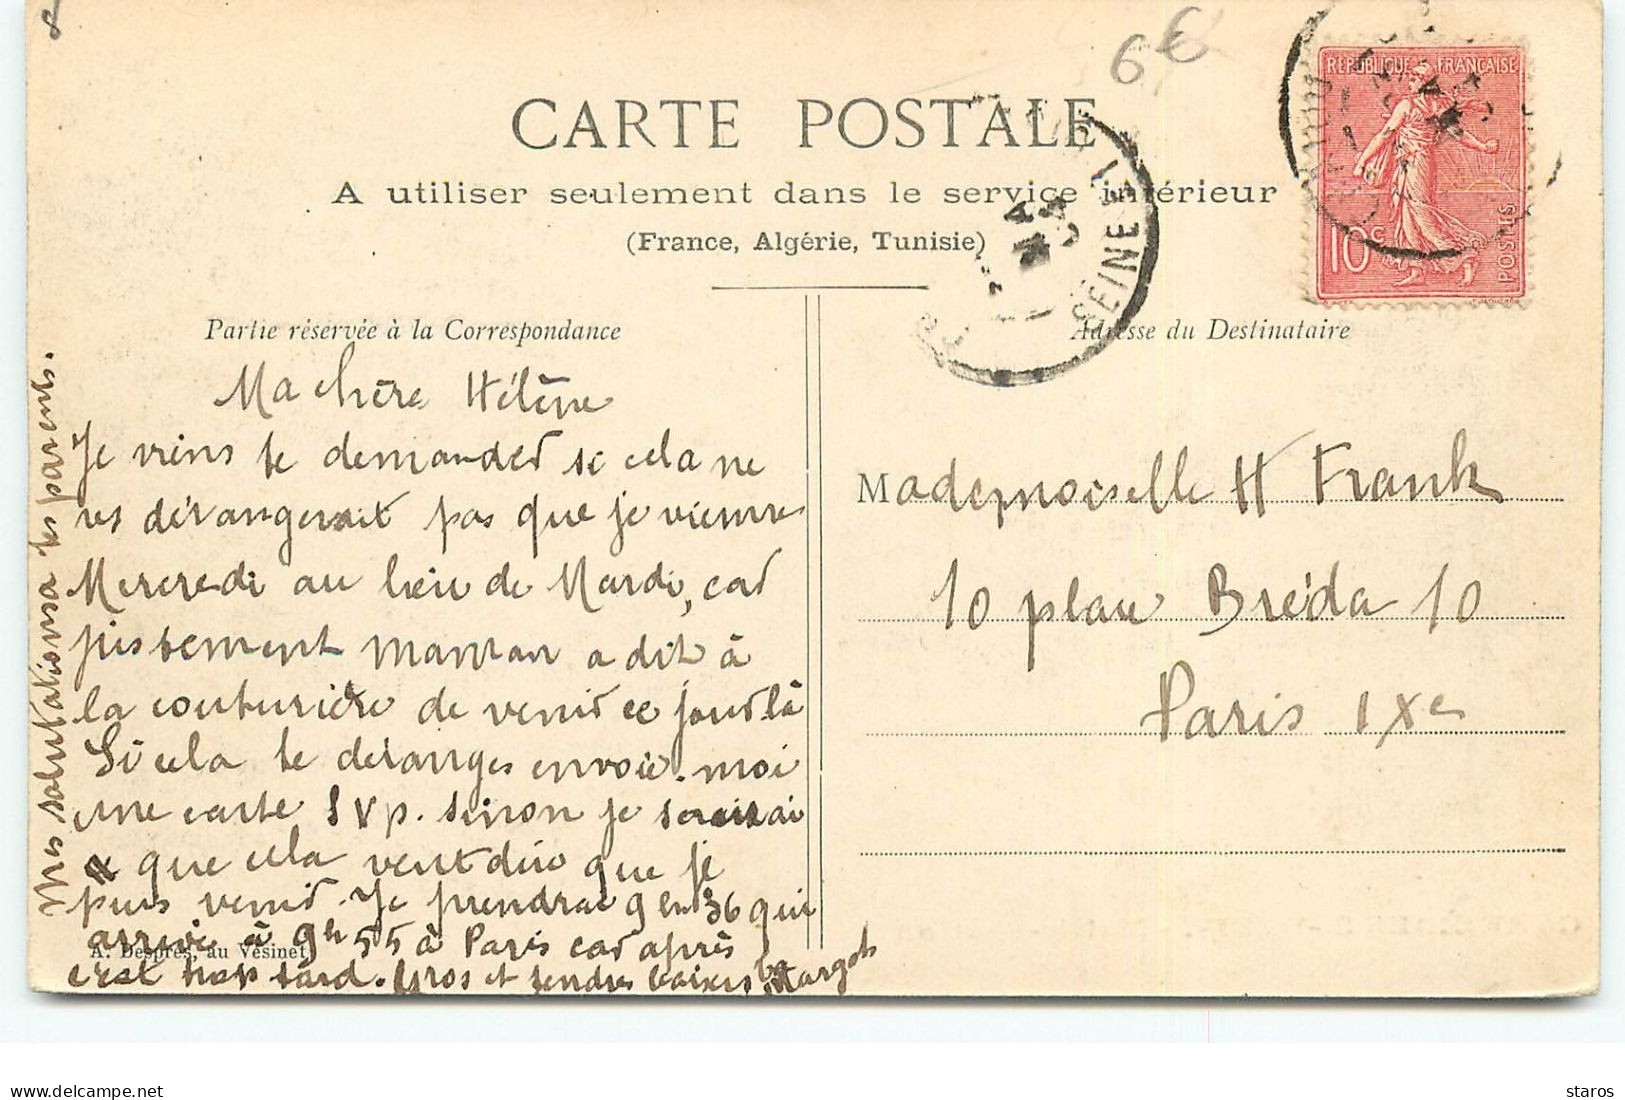 6€
CARTE POSTALE
A utiliser seulement dans le service intérieur
(France, Algérie, Tunisie)
RÉPUBLIQUE FRANÇAISE
10c
POSTES
SEINE
Partie réservée à la Correspondance
Ma chère Hélène
Je viens te demander si cela ne
vs dérangerait pas que je vienne
Mercredi au lieu de Mardi, car
justement maman a dit à
la couturière de venir ce jour là
Si cela te déranges envoie-moi
une carte S V p. sinon je saurai
que cela veut dire que je
puis venir. Je prendrai 9h 36 qui
arrive à 9h 55 à Paris car après
c'est trop tard. Gros et tendres baisers Margot
Mes salutations à tes parents.
A. Desprès, au Vésinet
Adresse du Destinataire
Mademoiselle H Frank
10 place Bréda 10
Paris IXe
staros